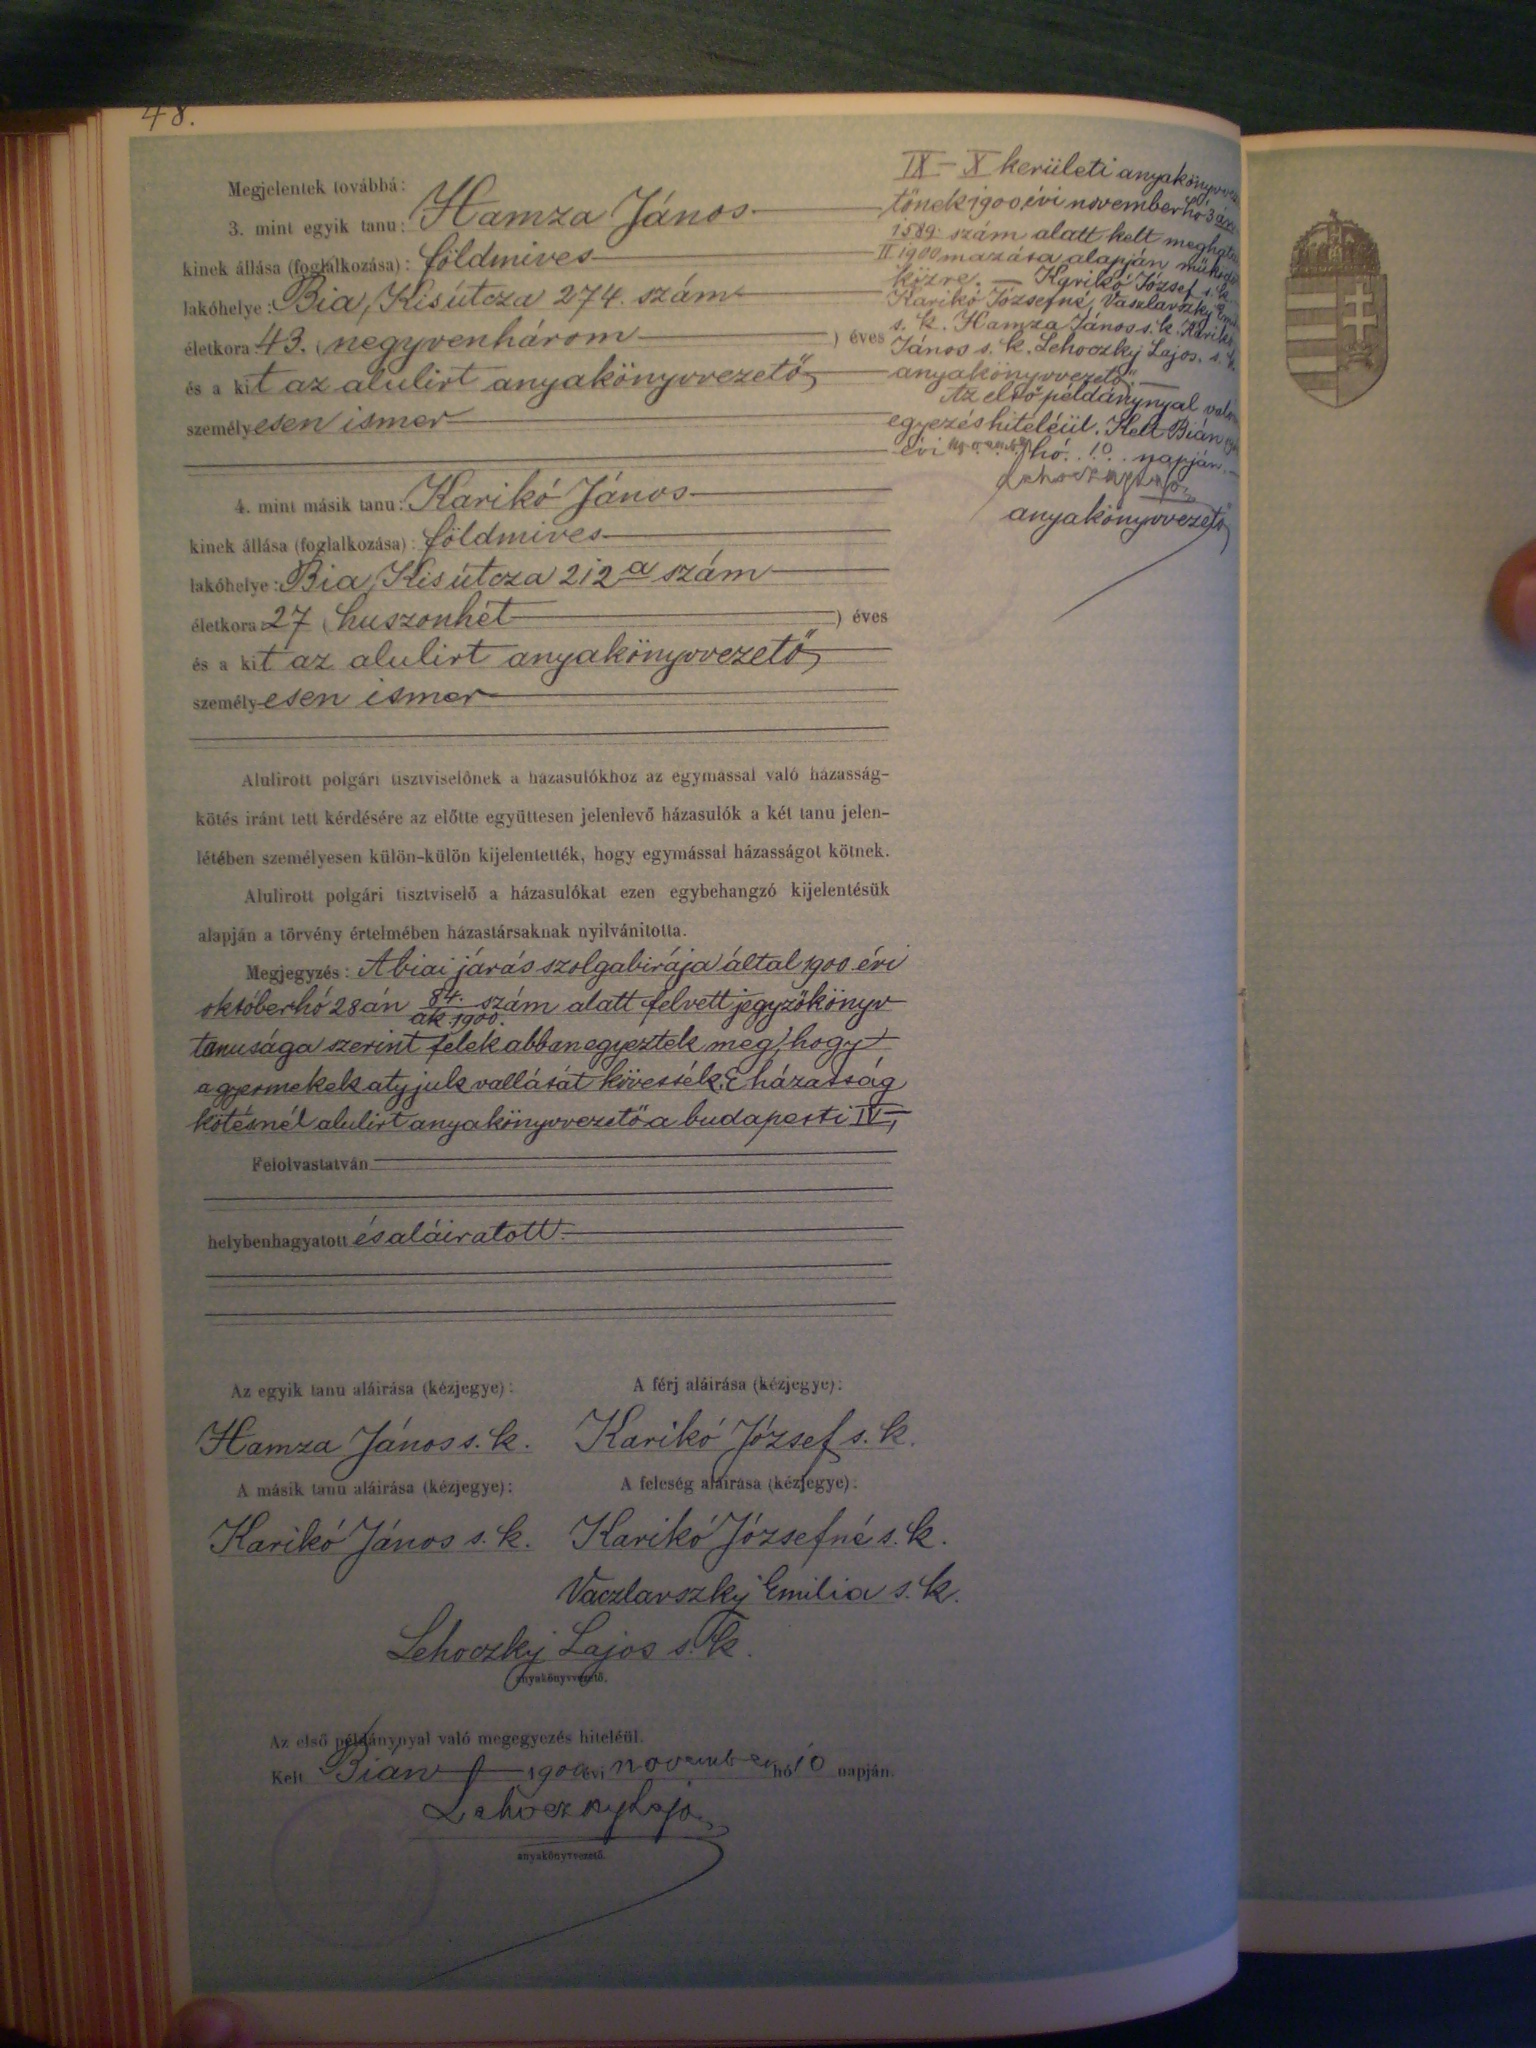 48.
Megjelentek továbbá:
3. mint egyik tanu: Hamza János
kinek állása (foglalkozása): földmives
lakóhelye: Bia, Kisútcza 274. szám
életkora 43. (negyvenhárom) éves
és a kit az alulirt anyakönyvvezető
személyesen ismer
4. mint másik tanu: Karikó János
kinek állása (foglalkozása): földmives
lakóhelye: Bia, Kisútcza 212 a szám
életkora 27 (huszonhét) éves
és a kit az alulirt anyakönyvvezető
személyesen ismer
Alulirott polgári tisztviselőnek a házasulókhoz az egymással való házasság-
kötés iránt tett kérdésére az előtte együttesen jelenlevő házasulók a két tanu jelen-
létében személyesen külön-külön kijelentették, hogy egymással házasságot kötnek.
Alulirott polgári tisztviselő a házasulókat ezen egybehangzó kijelentésük
alapján a törvény értelmében házastársaknak nyilvánitotta.
Megjegyzés: A biai járás szolgabirája által 1900 évi
októberhó 28án 84. szám alatt felvett jegyzőkönyv
ak. 1900.
tanusága szerint felek abban egyeztek meg, hogy
a gyermekek atyjuk vallását kövessék. E házasság
kötésnél alulirt anyakönyvvezető a budapesti IV-
Felolvastatván
helybenhagyatott és aláiratott.
Az egyik tanu aláirása (kézjegye):
A férj aláirása (kézjegye):
Hamza János s. k.
Karikó József s. k.
A másik tanu aláirása (kézjegye):
A feleség aláirása (kézjegye):
Karikó János s. k.
Karikó Józsefné s. k.
Vaczlavszky Emilia s. k.
Lehoczky Lajos s. k.
anyakönyvvezető.
Az első példánynyal való megegyezés hiteléül.
Kelt Bián 1900 évi november hó 10 napján.
Lehoczky Lajos
anyakönyvvezető.
IX - X kerületi anyakönyvve
tőnek 1900 évi novemberhó 3án
1589. szám alatt kelt meghatal
II. 1900 mazása alapján működö
közre. — Karikó József s. k.
Karikó Józsefné, Vaszlavszky Emil
s. k. Hamza János s. k. Karikó
János s. k. Lehoczky Lajos. s. k.
anyakönyvvezető."
Az első példánynyal való
egyezés hiteléül. Kelt Bián
évi november hó 10 napján.
Lehoczky Lajos
anyakönyvvezető